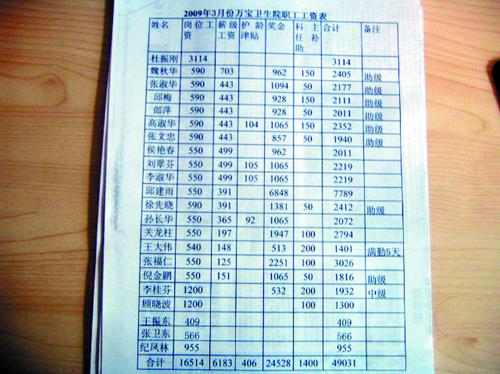 2009年3月份万宝卫生院职工工资表
姓名 岗位工资 薪级工资 护龄津贴 奖金 科主任补助 合计 备注
杜振刚 3114 3114
魏秋华 590 703 962 150 2405 助级
张淑华 590 443 1094 50 2177 助级
邱梅 590 443 928 150 2111 助级
邰萍 590 443 928 50 2011 助级
高淑华 590 443 104 1065 150 2352 助级
张文忠 590 443 857 50 1940 助级
侯艳春 550 499 962 2011
刘翠芬 550 499 105 1065 2219
李淑华 550 499 105 1065 2219
邱建雨 550 391 6848 7789
徐先晓 590 391 1381 50 2412 助级
孙长华 550 365 92 1065 2072
关龙柱 550 197 1947 100 2794
王大伟 540 148 513 200 1401 满勤5天
张福仁 550 125 2251 100 3026
倪金鹏 550 151 1065 50 1816 助级
李桂芬 1200 532 200 1932 中级
顾晓波 1200 100 1300
王振东 409 409
张卫东 566 566
纪凤林 955 955
合计 16514 6183 406 24528 1400 49031